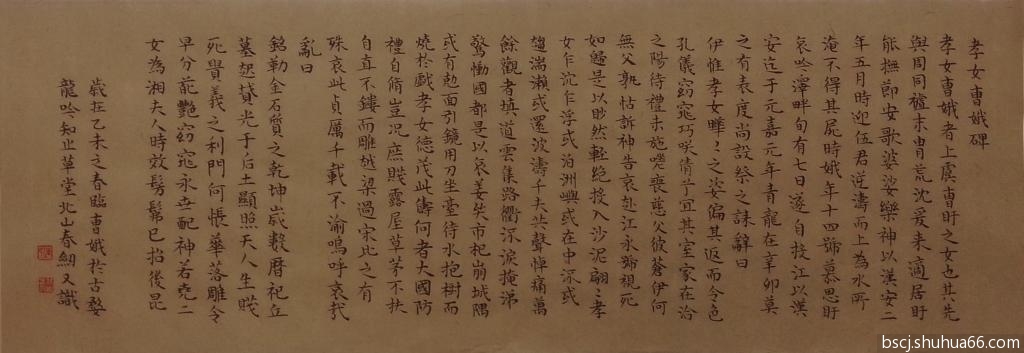 孝女曹娥碑
孝女曹娥者上虞曹盱之女也其先
與周同祖末胄荒沈爰来適居盱
能撫節安歌婆娑樂神以漢安二
年五月時迎伍君逆濤而上為水所
淹不得其屍時娥年十四號慕思盱
哀吟澤畔旬有七日遂自投江以漢
安迄于元嘉元年青龍在辛卯莫
之有表度尚設祭之誄辭曰
伊惟孝女曄〻之姿偏其返而令色
孔儀窈窕巧咲倩兮宜其室家在洽
之陽待禮未施嗟喪慈父彼蒼伊何
無父孰怙訴神告哀赴江永號視死
如歸是以眇然輕絶投入沙泥翩〻孝
女乍沈乍浮或泊洲嶼或在中深或
趨湍瀨或還波濤千夫共聲悼痛萬
餘觀者填道雲集路衢深淚掩涕
驚慟國都是以哀姜哭市杞崩城隅
或有剋面引鏡用刀坐臺待水抱樹而
燒於戲孝女德茂此儔何者大國防
禮自脩豈况庶賤露屋草茅不扶
自直不鏤而雕越梁過宋比之有
殊哀此貞厲千載不渝嗚呼哀哉
亂曰
銘勒金石質之乾坤歲數曆祀丘
墓起墳光于后土顯照天人生賤
死貴義之利門何悵華落雕零
早分葩艷窈窕永世配神若堯二
女為湘夫人時效髣髴已招後昆
歲在乙未之春臨曹娥於古婺
龍吟知止草堂北山春
bscj.shuhua66.com